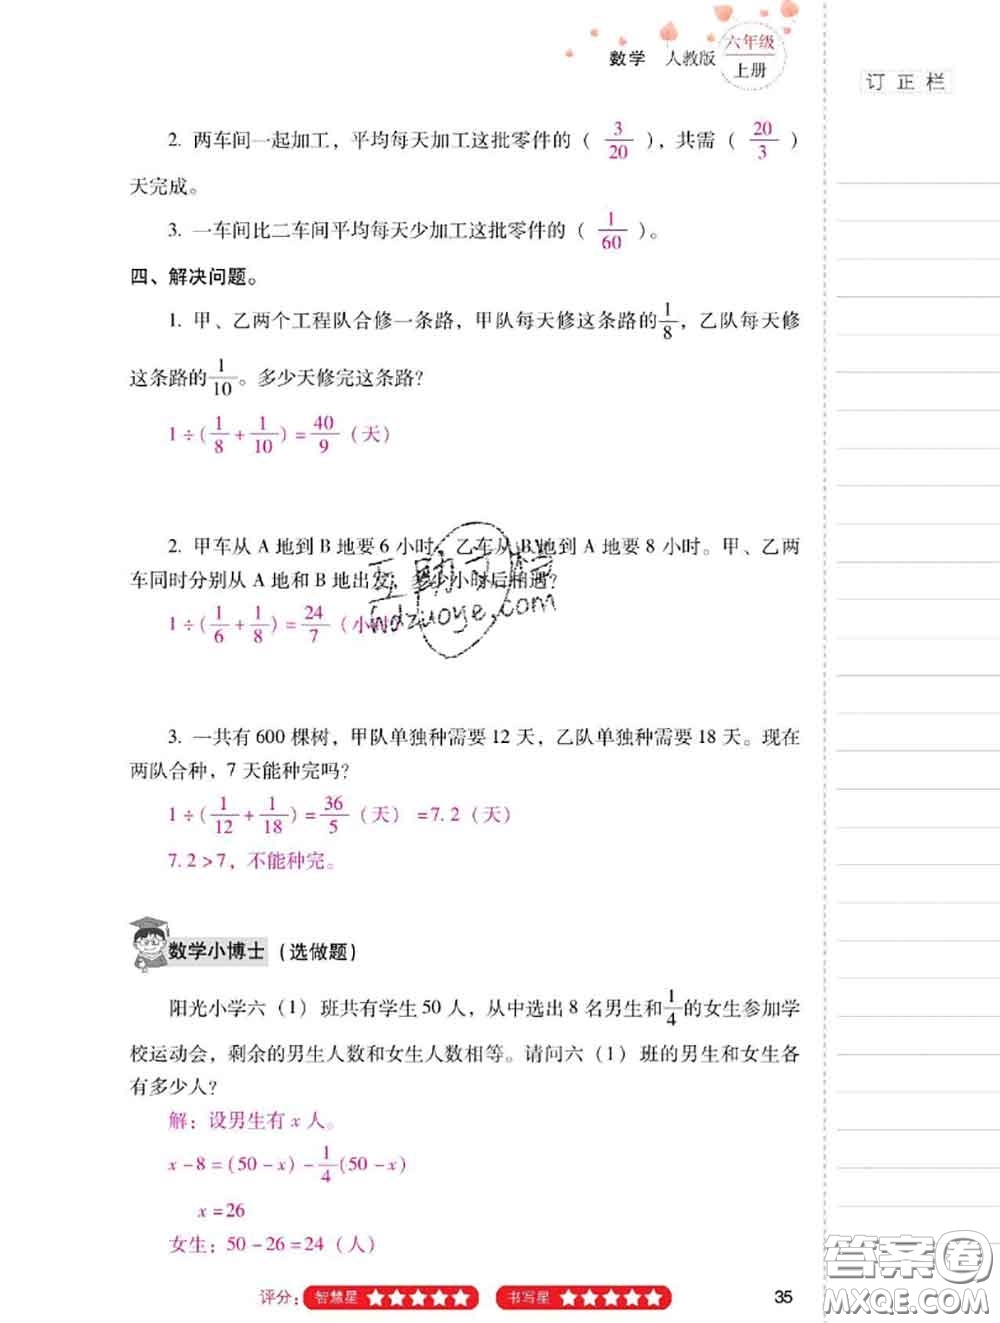 数学 人教版 六年级
上册
订正栏
2. 两车间一起加工，平均每天加工这批零件的（ 3/20 ），共需（ 20/3 ）
天完成。
3. 一车间比二车间平均每天少加工这批零件的（ 1/60 ）。
四、解决问题。
1. 甲、乙两个工程队合修一条路，甲队每天修这条路的1/8，乙队每天修
这条路的1/10。多少天修完这条路？
1÷(1/8+1/10)=40/9（天）
2. 甲车从 A 地到 B 地要 6 小时，乙车从 B 地到 A 地要 8 小时。甲、乙两
车同时分别从 A 地和 B 地出发，多少小时后相遇？
1÷(1/6+1/8)=24/7（小时
hdzuoye.com
3. 一共有 600 棵树，甲队单独种需要 12 天，乙队单独种需要 18 天。现在
两队合种，7 天能种完吗？
1÷(1/12+1/18)=36/5（天）=7.2（天）
7.2>7，不能种完。
数学小博士（选做题）
阳光小学六（1）班共有学生 50 人，从中选出 8 名男生和1/4的女生参加学
校运动会，剩余的男生人数和女生人数相等。请问六（1）班的男生和女生各
有多少人？
解：设男生有 x 人。
x-8=(50-x)-1/4(50-x)
x=26
女生：50-26=24（人）
评分：智慧星★★★★★ 书写星★★★★★
35
答案圈
MXQE.COM